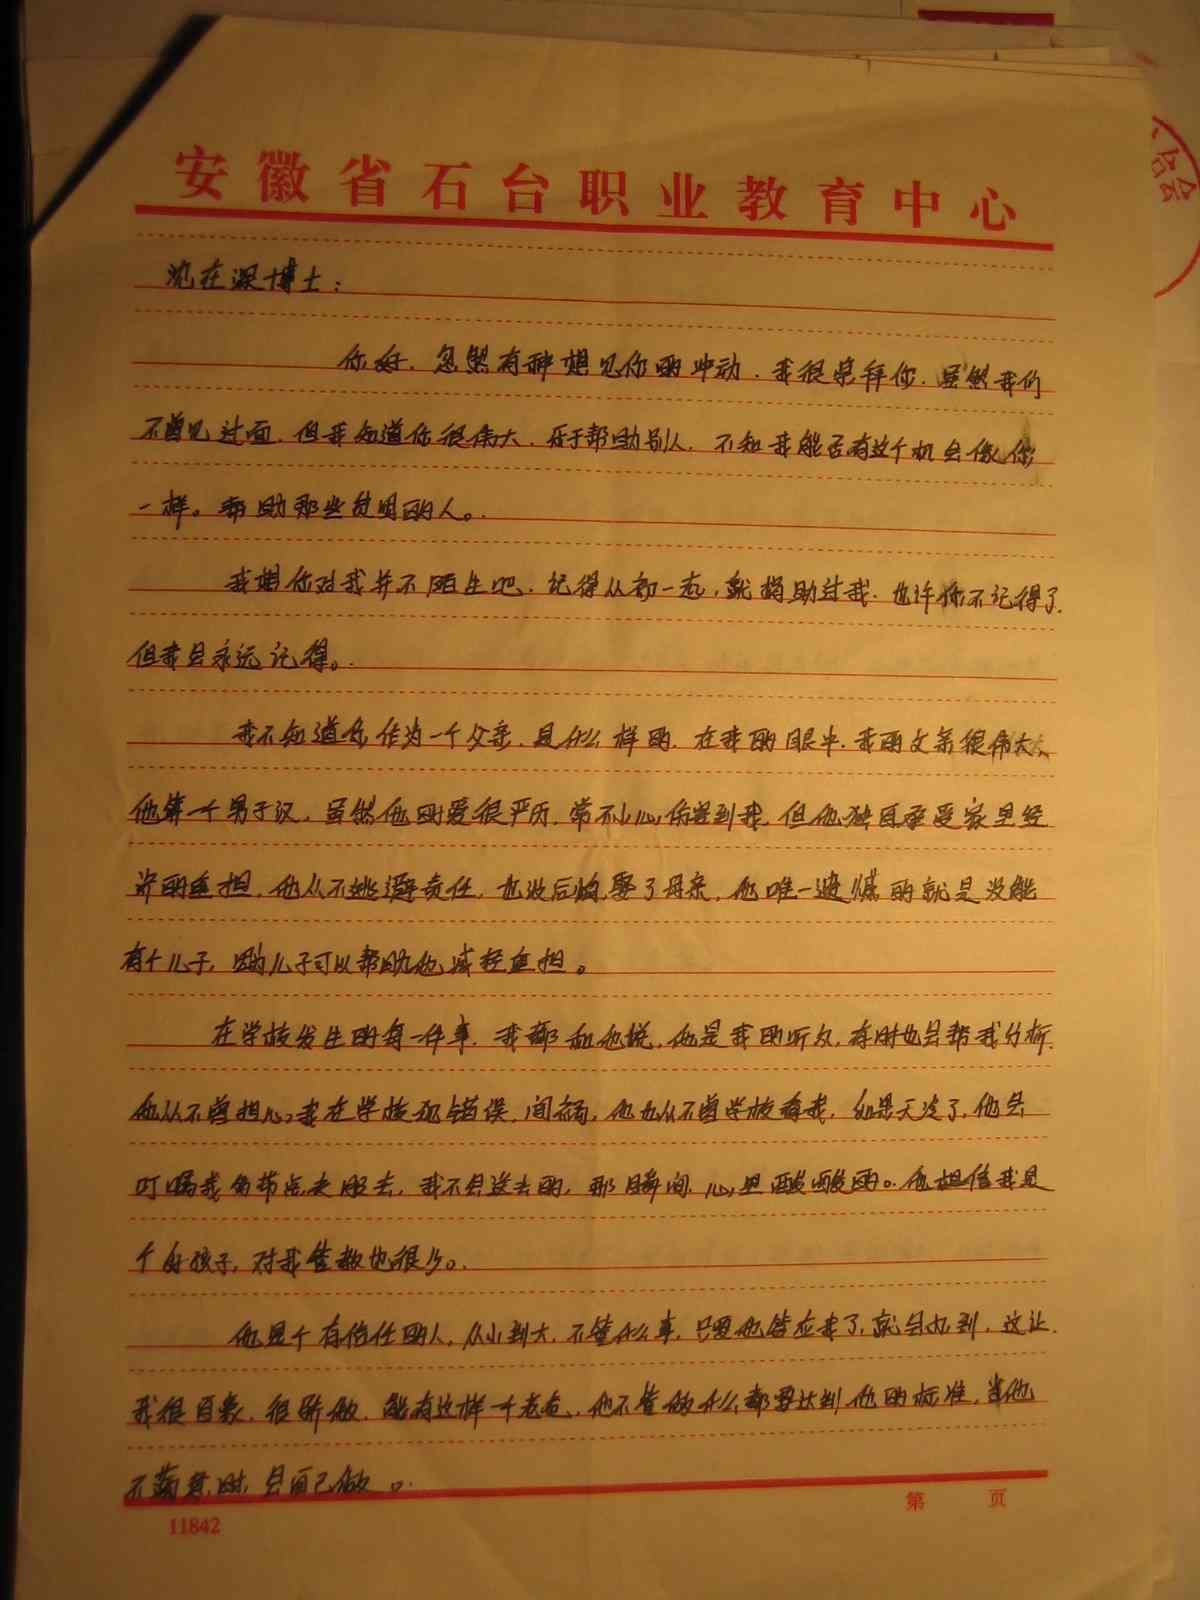 安徽省石台职业教育中心
沈在深博士：
你好，忽然有种想见你的冲动，我很崇拜你，虽然我们
不曾见过面，但我知道你很伟大，乐于帮助别人，不知我能否有这个机会像你
一样。帮助那些贫困的人。
我想你对我并不陌生吧，记得从初一起，就捐助过我，也许你不记得了，
但我会永远记得。
我不知道你作为一个父亲，是什么样的，在我的眼中，我的父亲很伟大，
他算一个男子汉，虽然他的爱很严厉，常不小心伤害到我，但他独自承受家里经
济的重担，他从不逃避责任，也没后悔娶了母亲，他唯一遗憾的就是没能
有个儿子，因为儿子可以帮助他减轻重担。
在学校发生的每一件事，我都和他说，他是我的听众，有时也会帮我分析，
他从不曾担心，我在学校犯错误，闯祸，他也从不曾学校看我，如果天冷了，他会
叮嘱我多带点衣服去，我不会送去的，那瞬间，心里酸酸的。他相信我是
个好孩子，对我管教也很少。
他是个有信任的人，从小到大，不管什么事，只要他答应我了，就会办到，这让
我很自豪，很骄傲，能有这样一个老爸，他不管做什么都要达到他的标准，当他
不满意时，会自己做。
第 页
11842